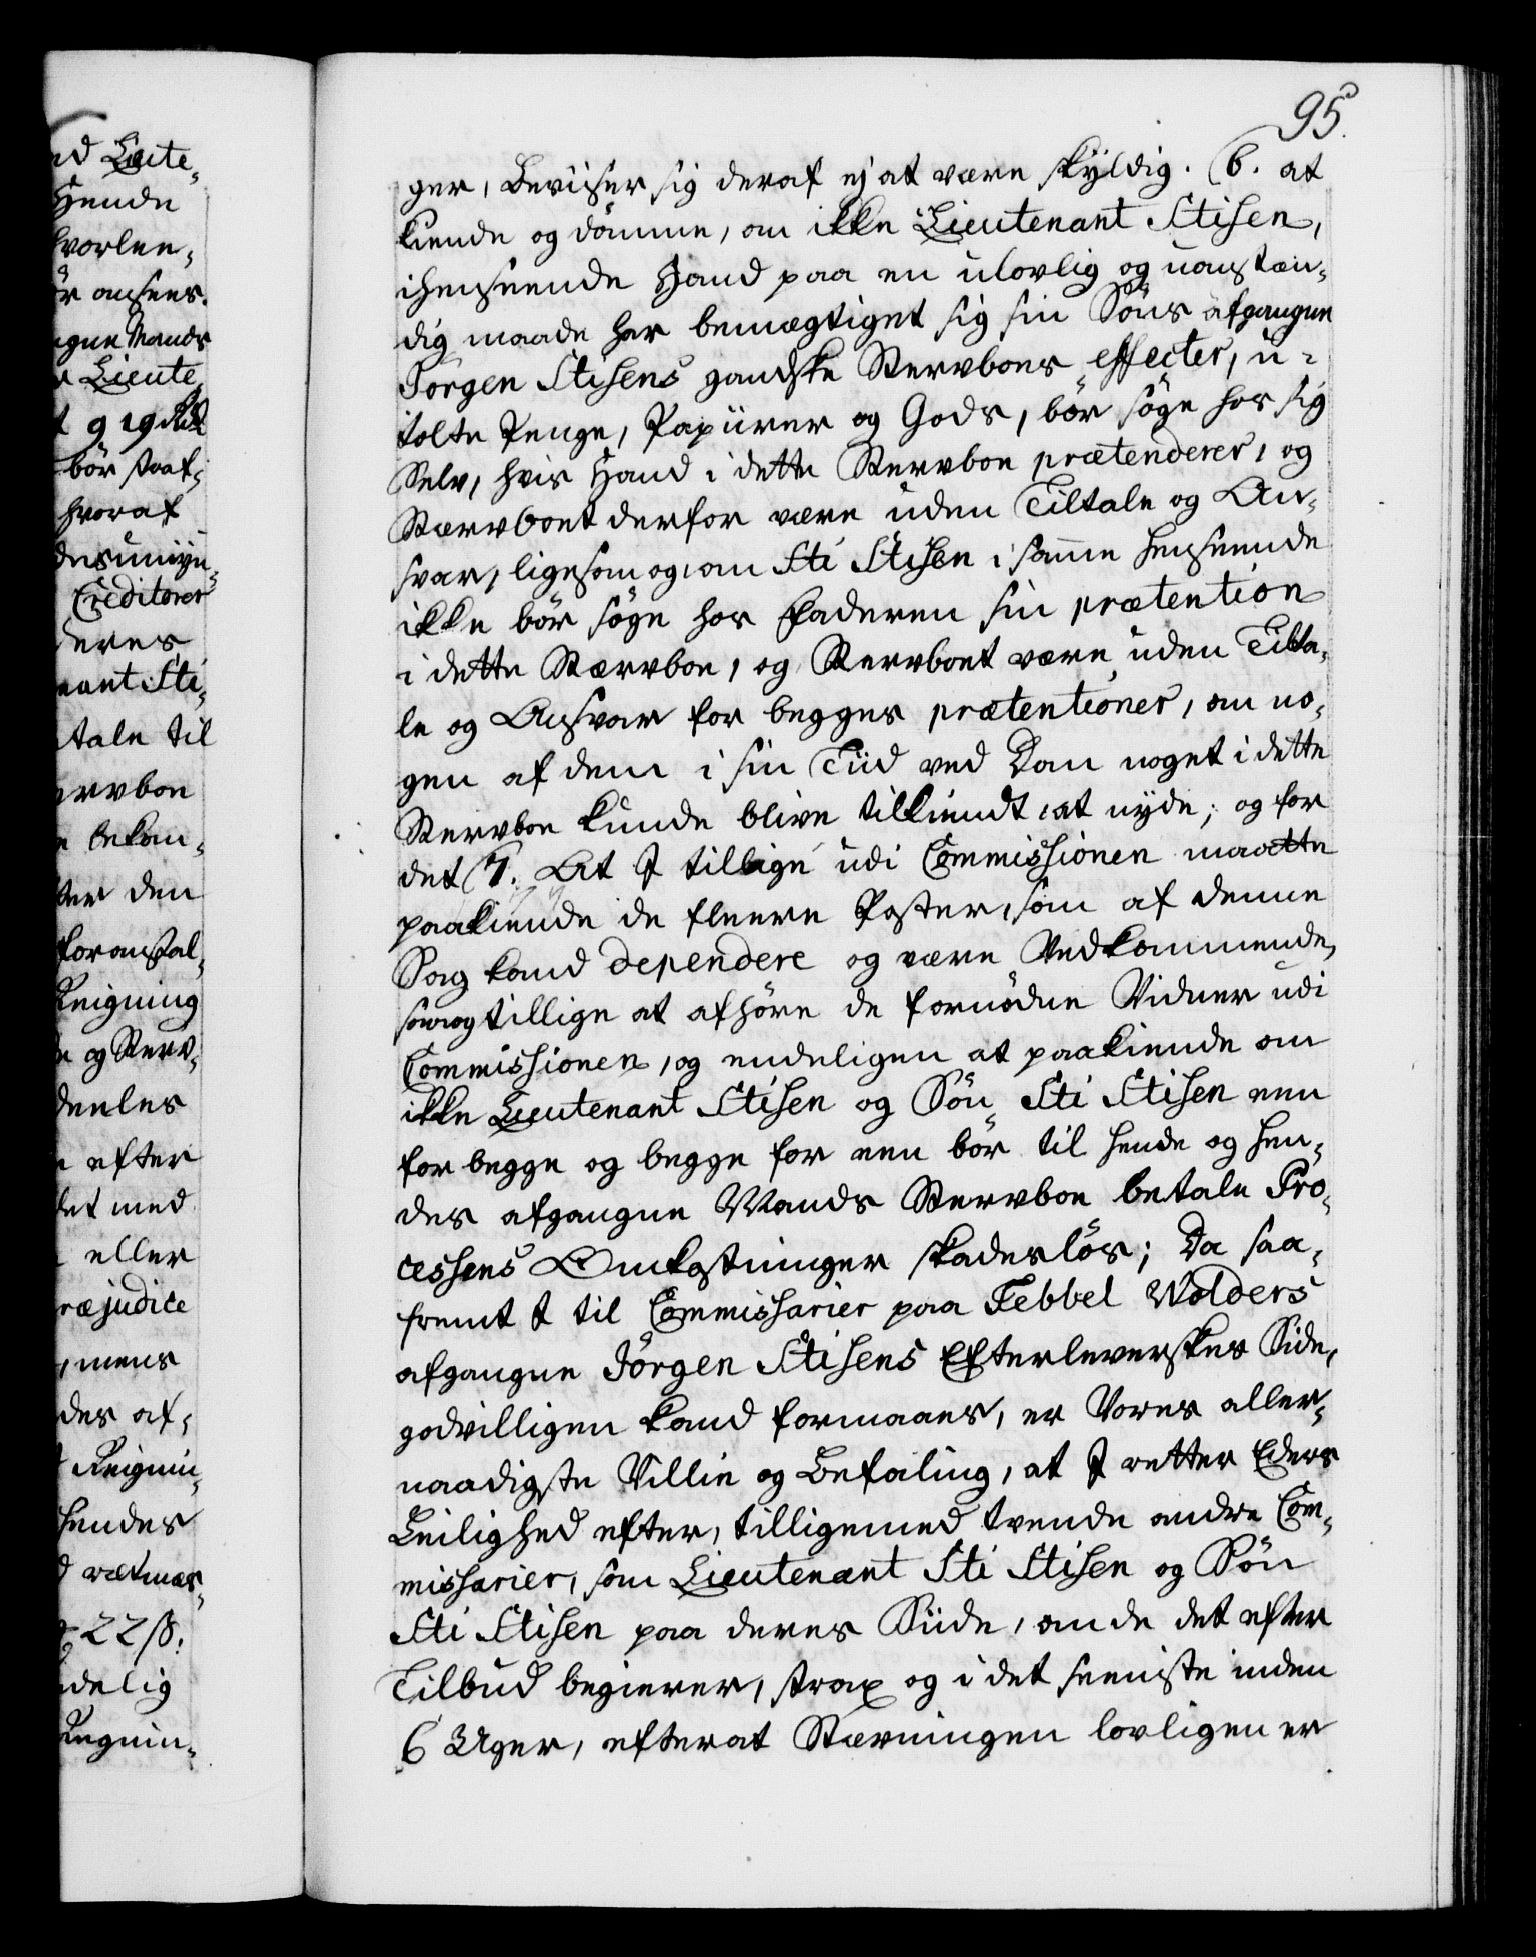 95.
ger, beviiser sig deraf ej at være skÿldig. (6. at
kiende og dömme, om ikke Lieutenant Stisen,
ihenseende Hand paa en ulovlig og uanstæn-
dig maade har bemægtiget sig sin Söns afgangne
Jörgen Stisens gandske Stervboes effecter, u-
talte Penge, Papiirer og Gods, bör söge hos sig
Selv, hvis Hand i dette Stervboe prætenderer, og
Stærvboet derfor være uden Tiltale og An-
svar, ligesom og, om Sti Stisen i samme henseende
ikke bör söge hos Faderen sin prætention
i dette Stærvboe, og Stervboet være uden Tilta-
le og Ansvar for begges prætentioner, om no-
gen af dem i sin Tiid ved Dom noget i dette
Stervboe kunde blive tilkiendt at nyde; og for
det (7. At I tillige udi Commissionen maatte
paakiende de fleere Poster, som af denne
Sag kand dependere og være Vedkommende,
saa og tillige at afhöre de fornödne Vidner udi
Commissionen, og endeligen at paakiende om
ikke Lieutenant Stisen og Sön Sti Stisen een
for begge og begge for een bör til hende og hen-
des afgangne Mands Stervboe betale Pro-
cessens Omkostninger skadeslös; Da saa-
fremt I til Commissarier paa Febbel Wolders
afgangne Jörgen Stisens Efterleverskes Side,
godvilligen kand formaaes, er Vores aller-
naadigste Villie og Befaling, at I retter Eders
Leilighed efter, tilligemed tvende andre Com-
missarier, som Lieutenant Sti Stisen og Sön
Sti Stisen paa deres Siide, om de det efter
Tilbud begierer, strax og i det seeniste inden
6 Uger, efterat Stævningen lovligen er